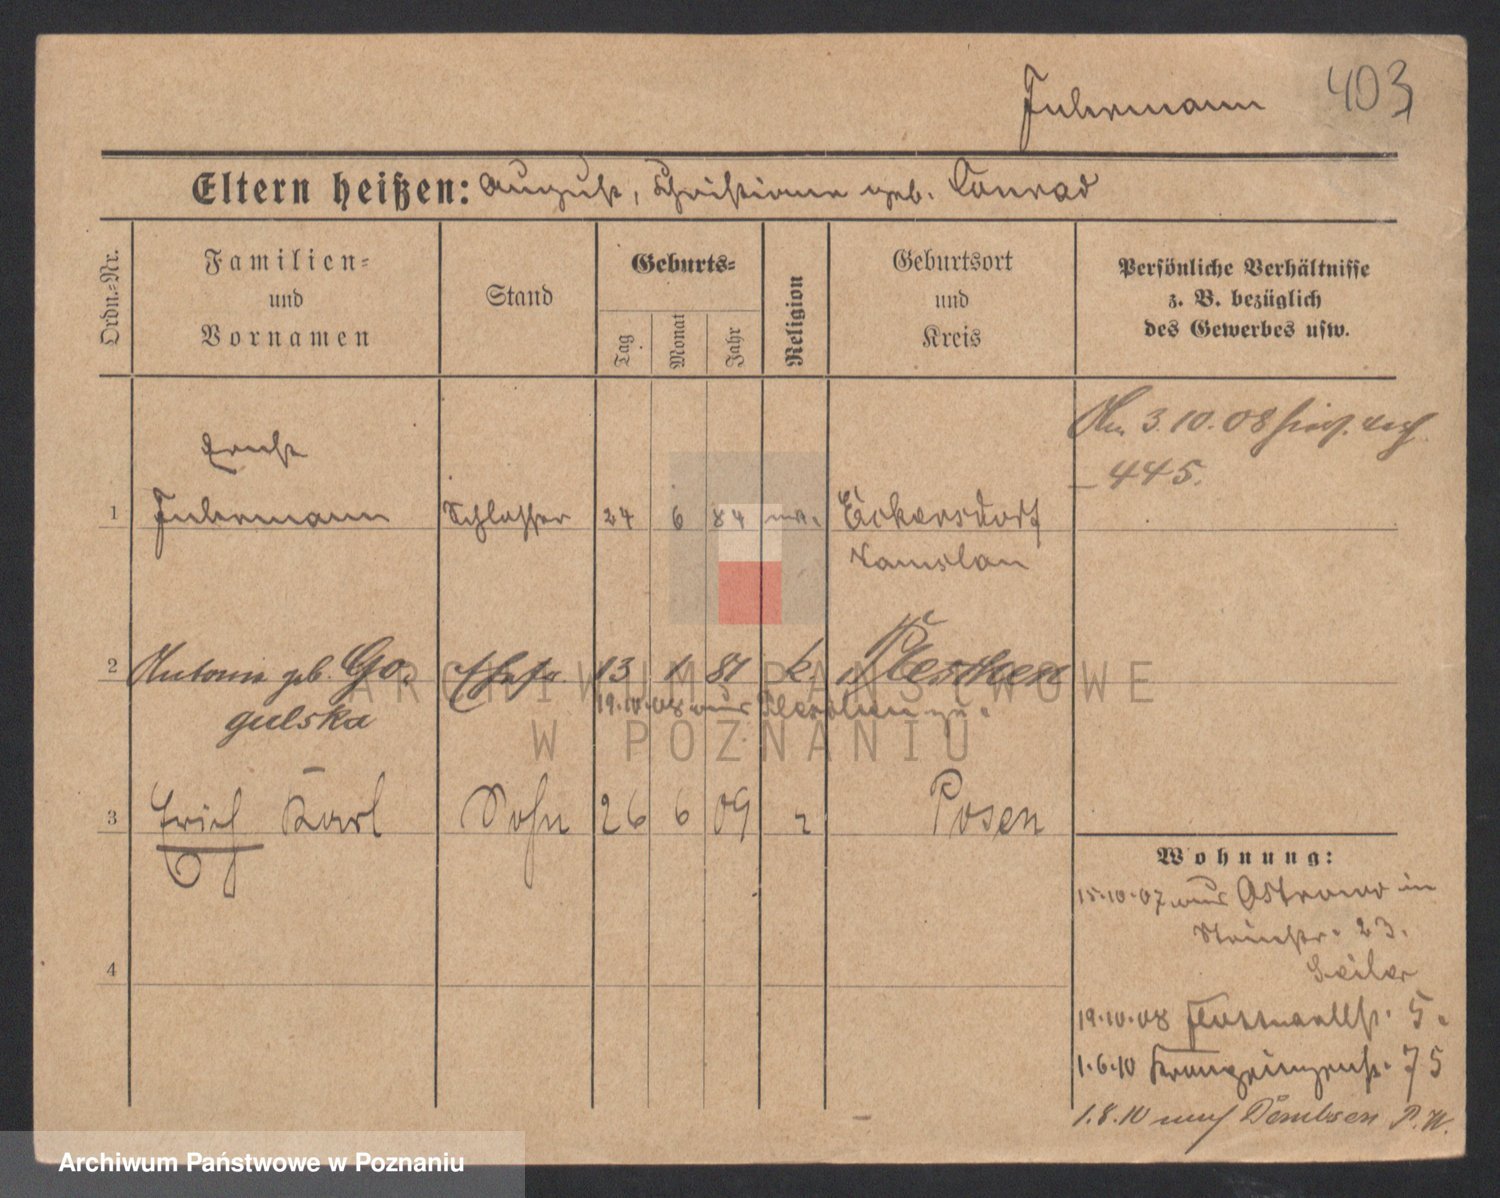 403
Fuhrmann
Eltern heißen: August, Christiane geb. Conrad
Ordn.=Nr.
Familien=
und
Vornamen
Stand
Geburts=
Tag
Monat
Jahr
Religion
Geburtsort
und
Kreis
Persönliche Verhältnisse
z. B. bezüglich
des Gewerbes usw.
3.10.08
445.
Ernst
1 Fuhrmann Schlosser 24 6 84 Eckersdorf
Namslau
2 Antonie geb. Go-
gulska
Ehefr. 13 1 81 k. Pleschen
19.10.08 aus Pleschen zu.
3 Erich Karl Sohn 26 6 09 Posen
4
Wohnung:
15.10.07 aus Ostrowo in
23.
Seiler
19.10.08 5.
1.6.10 Kronprinzenstr. 75
1.8.10 nach Dembsen P. W.
ARCHIWUM PAŃSTWOWE
W POZNANIU
Archiwum Państwowe w Poznaniu